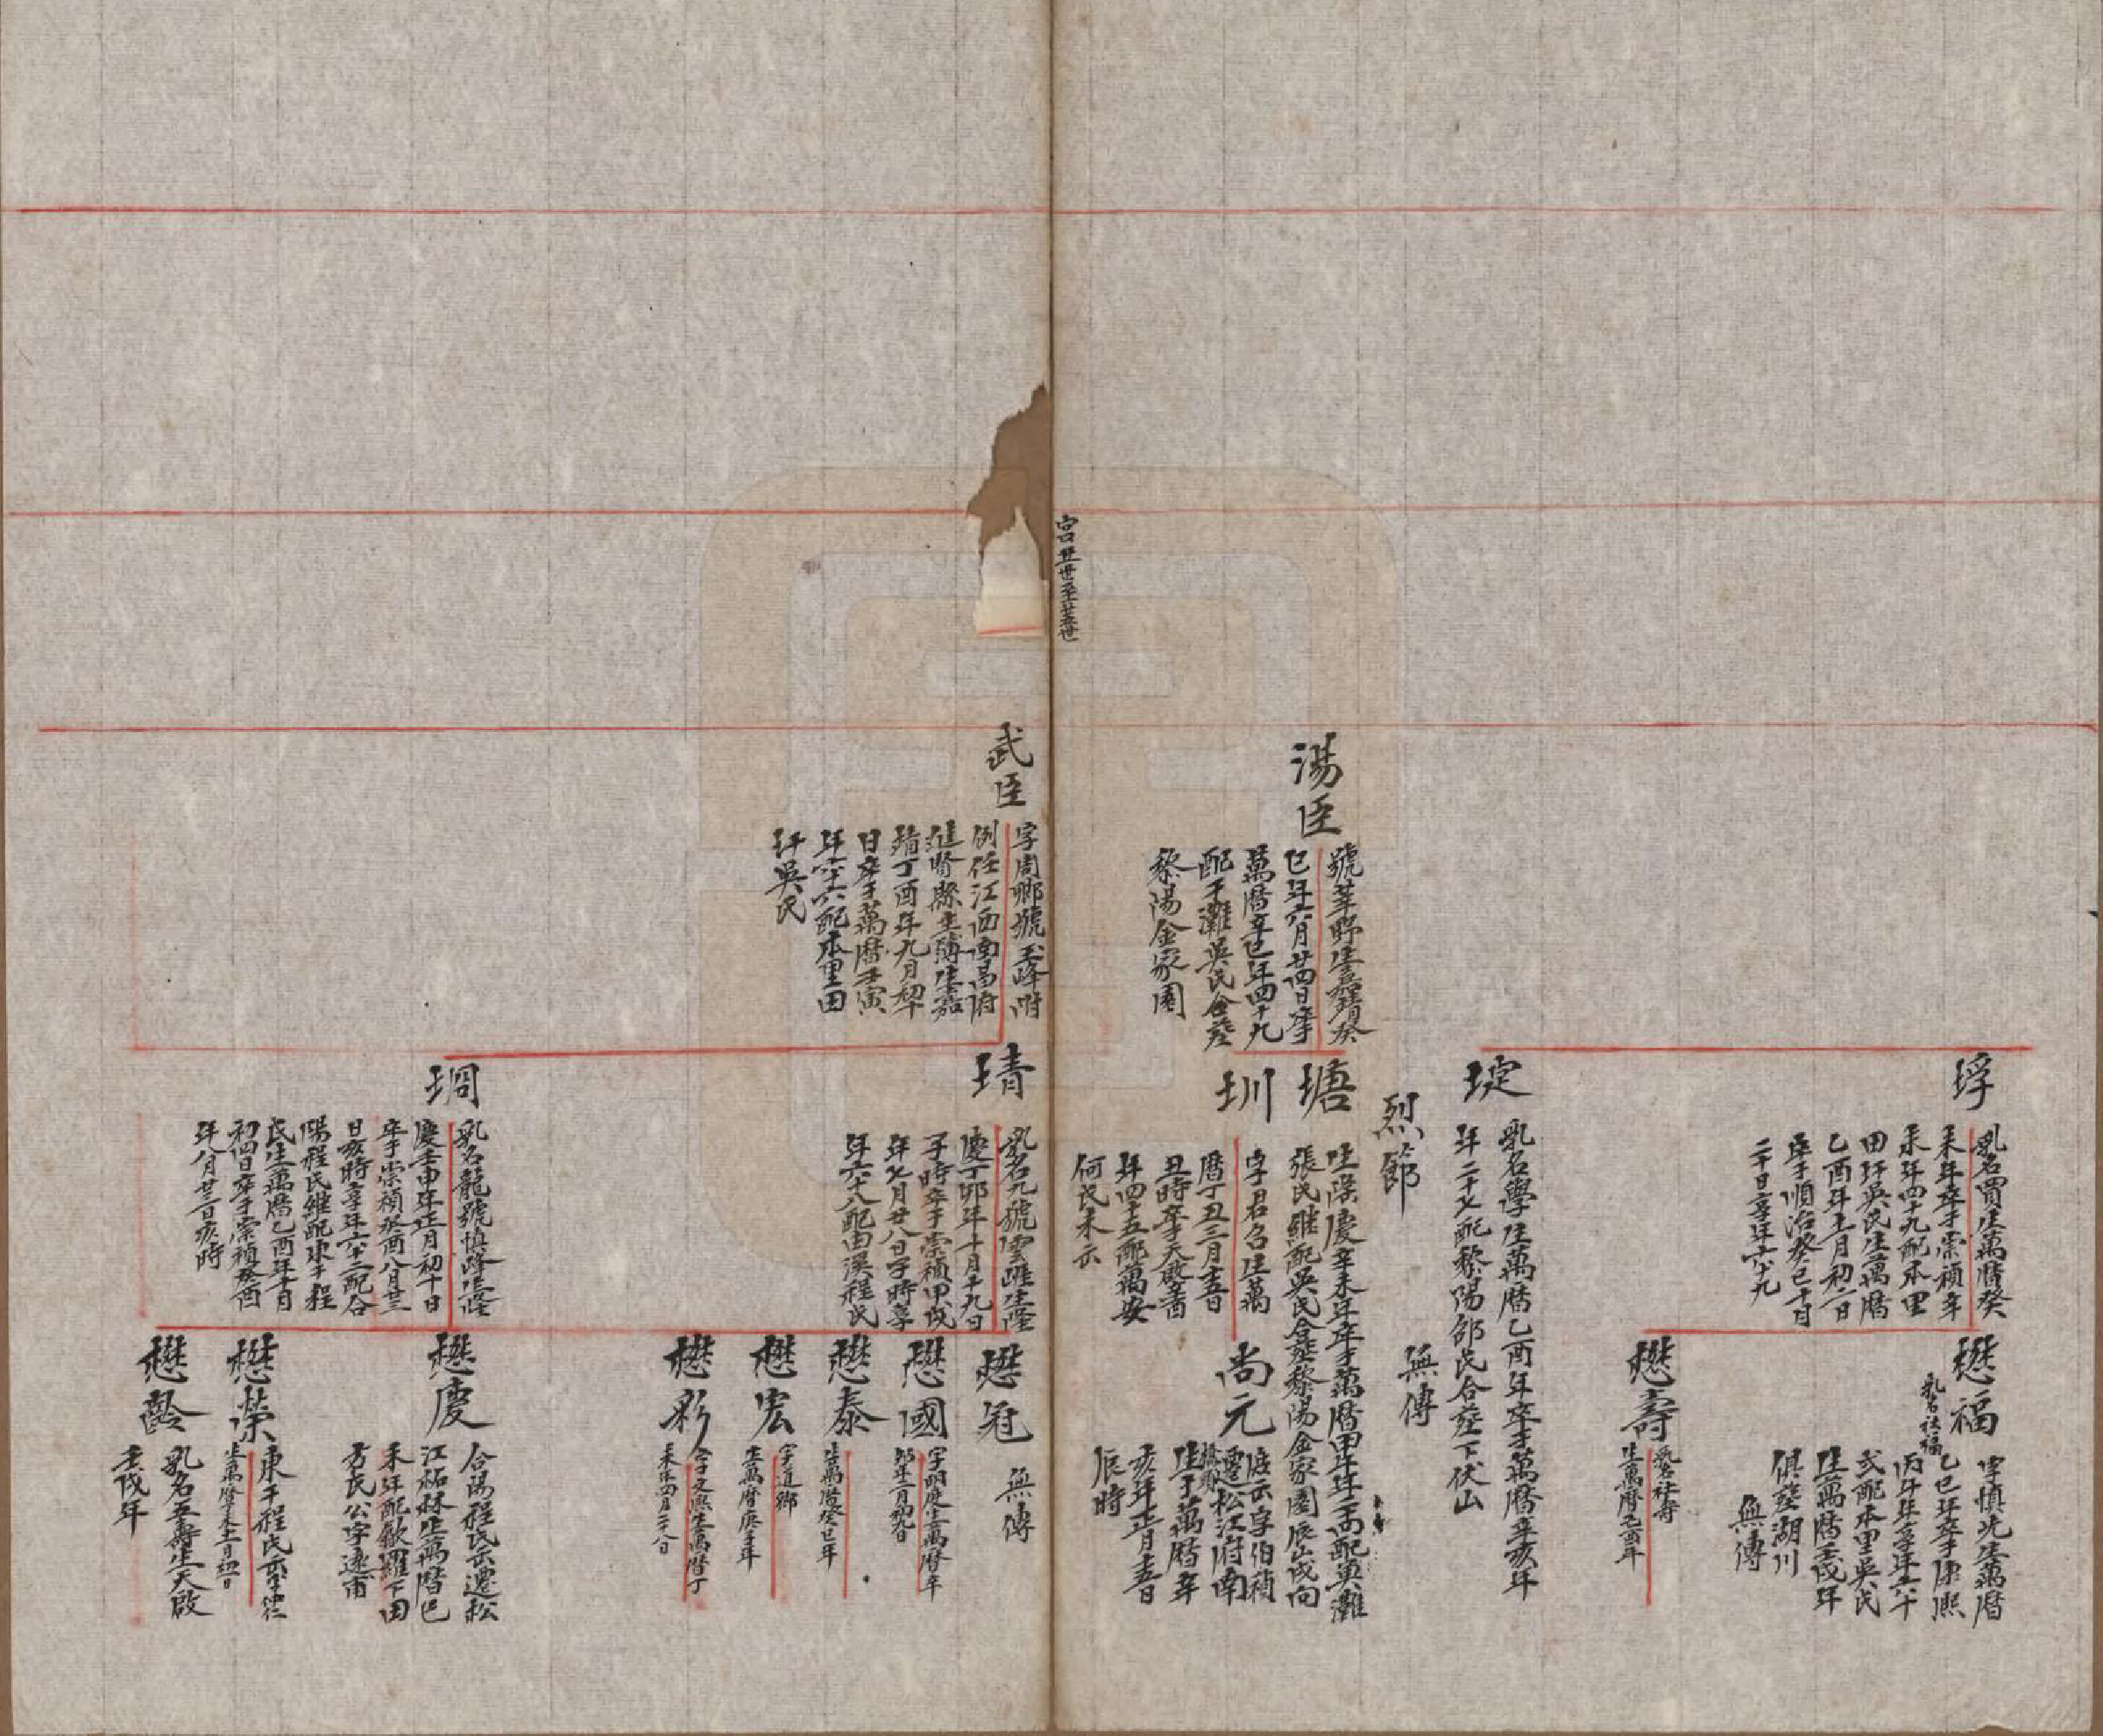 垺
乳名買生萬曆癸
未年卒于崇禎辛
未年四十九配本里
田圩吳氏生萬曆
乙酉年十一月初二日
卒于順治癸巳十月
二十日享年六十九
懋福
乳名社福
字慎光生萬曆
乙巳年卒于康熙
丙午年享年六十
弍配本里吳氏
生萬曆壬戌年
俱葬湖川
無傳
懋壽
乳名社壽
生萬曆己酉年
埞
乳名學生萬曆乙酉年卒于萬曆辛亥年
年二十七配黎陽邵氏合葬下伏山
烈節
無傳
湯臣
號莘野生嘉靖癸
巳年六月廿四日卒于
萬曆辛巳年四十九
配于灘吳氏合葬
黎陽金家園
塘
生隆慶辛未年卒于萬曆甲午年配黃灘
張氏繼配吳氏合葬黎陽金家園辰山戌向
圳
字君名生萬
曆丁丑三月十五日
丑時卒天啟
年四十五配萬安
何氏未示
尚元
字伯禎
遷松江府南
橋鎮
生于萬曆辛
亥年正月十五日
辰時
宫口廿一世至廿五世
武臣
字周卿號玉峰附
例任江西南昌府
進賢縣主簿生嘉
靖丁酉年九月初十
日卒于萬曆壬寅
年六十六配本里田
圩吳氏
埥
乳名九號雲 生隆
慶丁卯年十月十九日
子時卒于崇禎甲戌
年七月廿八日子時享
年六十八配由溪程氏
懋冠
無傳
懋國
字明庚生萬曆辛
卯年二月初九日
懋泰
生萬曆癸巳年
懋宏
字道卿
生萬曆庚子年
懋彩
字文熙生萬曆丁
未年四月二十八日
堈
乳名龍號慎峰生隆
慶壬申年正月初十日
卒于崇禎癸酉八月廿三
日亥時享年六十二配合
陽程氏繼配東干程
氏生萬曆乙酉年十月
初四日卒于崇禎癸酉
年八月廿三日亥時
懋慶
合陽程氏出遷松
江柘林生萬曆己
未年配歙羅下田
方氏公字遠甫
懋榮
東干程氏出字
懋齡
乳名五壽生天啟
壬戌年